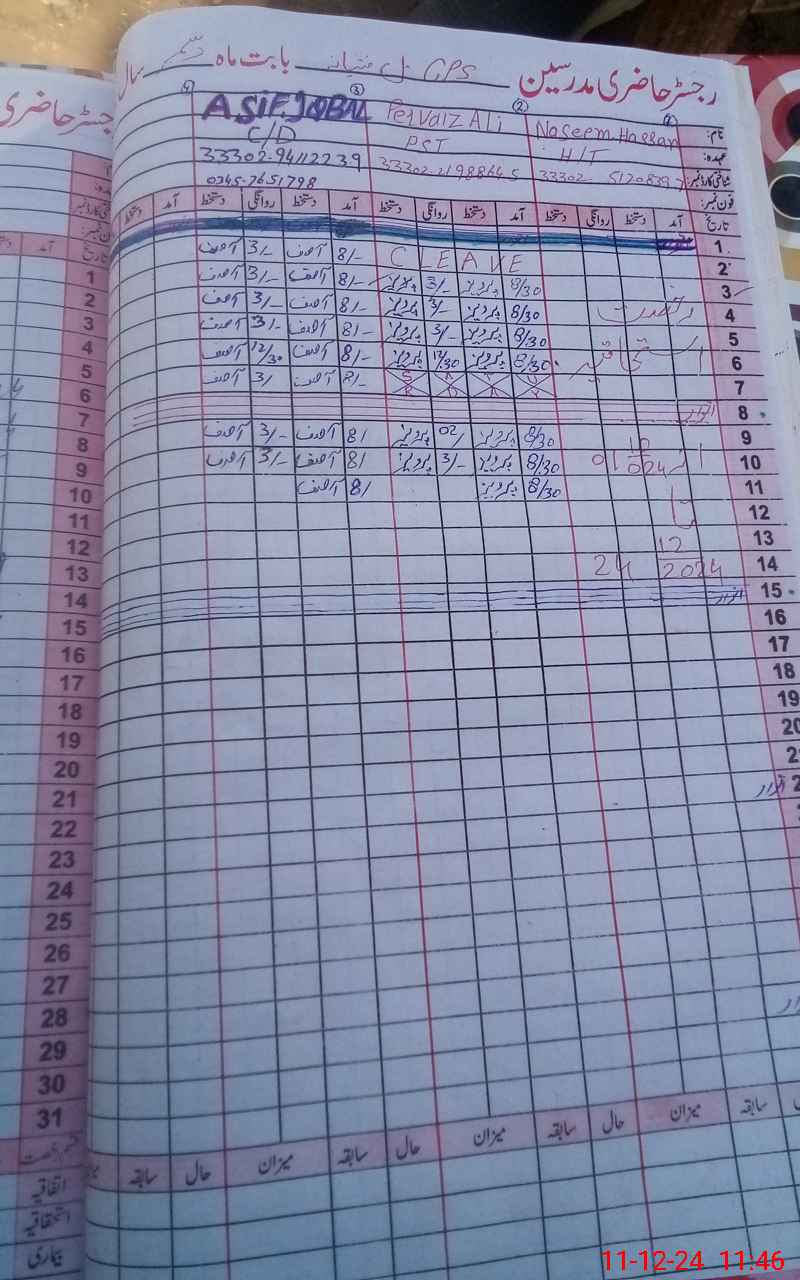 رجسٹر حاضری مدرسین GPS بابت ماہ دسمبر سال
نام: Naseem Hassan Pervaiz Ali ASIF.IQBAL
عہدہ: H/T PST C/D
شناختی کارڈ نمبر: 33302- 5120839 33302-2198864 5 33302-94112239
فون نمبر: 0345-7651798
تاریخ آمد دستخط روانگی دستخط آمد دستخط روانگی دستخط آمد دستخط روانگی دستخط آمد دستخط
1 اتوار
2 C LEAVE 8/- آصف 3/- آصف
3 8/30 پرویز 3/- پرویز 8/- آصف 3/- آصف
4 رخصت 8/30 پرویز 3/- پرویز 8/- آصف 3/- آصف
5 8/30 پرویز 3/- پرویز 8/- آصف 3/- آصف
6 استحقاقیہ 8/30 پرویز 12/30 پرویز 8/- آصف 12/30 آصف
7 8/- آصف 3/ آصف
8 اتوار
9 8/30 پرویز 02/ پرویز 8/ آصف 3/- آصف
10 از 01 12 2024 8/30 پرویز 3/- پرویز 8/ آصف 3/- آصف
11 8/30 پرویز 8/ آصف
12 تا
13
14 24 12 2024
15 اتوار
16
17
18
19
20
2
2 اتوار
میزان سابقہ حال میزان سابقہ حال میزان سابقہ حال
رجسٹر حاضری
تاریخ آمد
1
2
3
4
5
6
7
8
9
10
11
12
13
14
15
16
17
18
19
20
21
22
23
24
25
26
27
28
29
30
31
قسم رخصت
اتفاقیہ
استحقاقیہ
بیماری
11-12-24 11:46